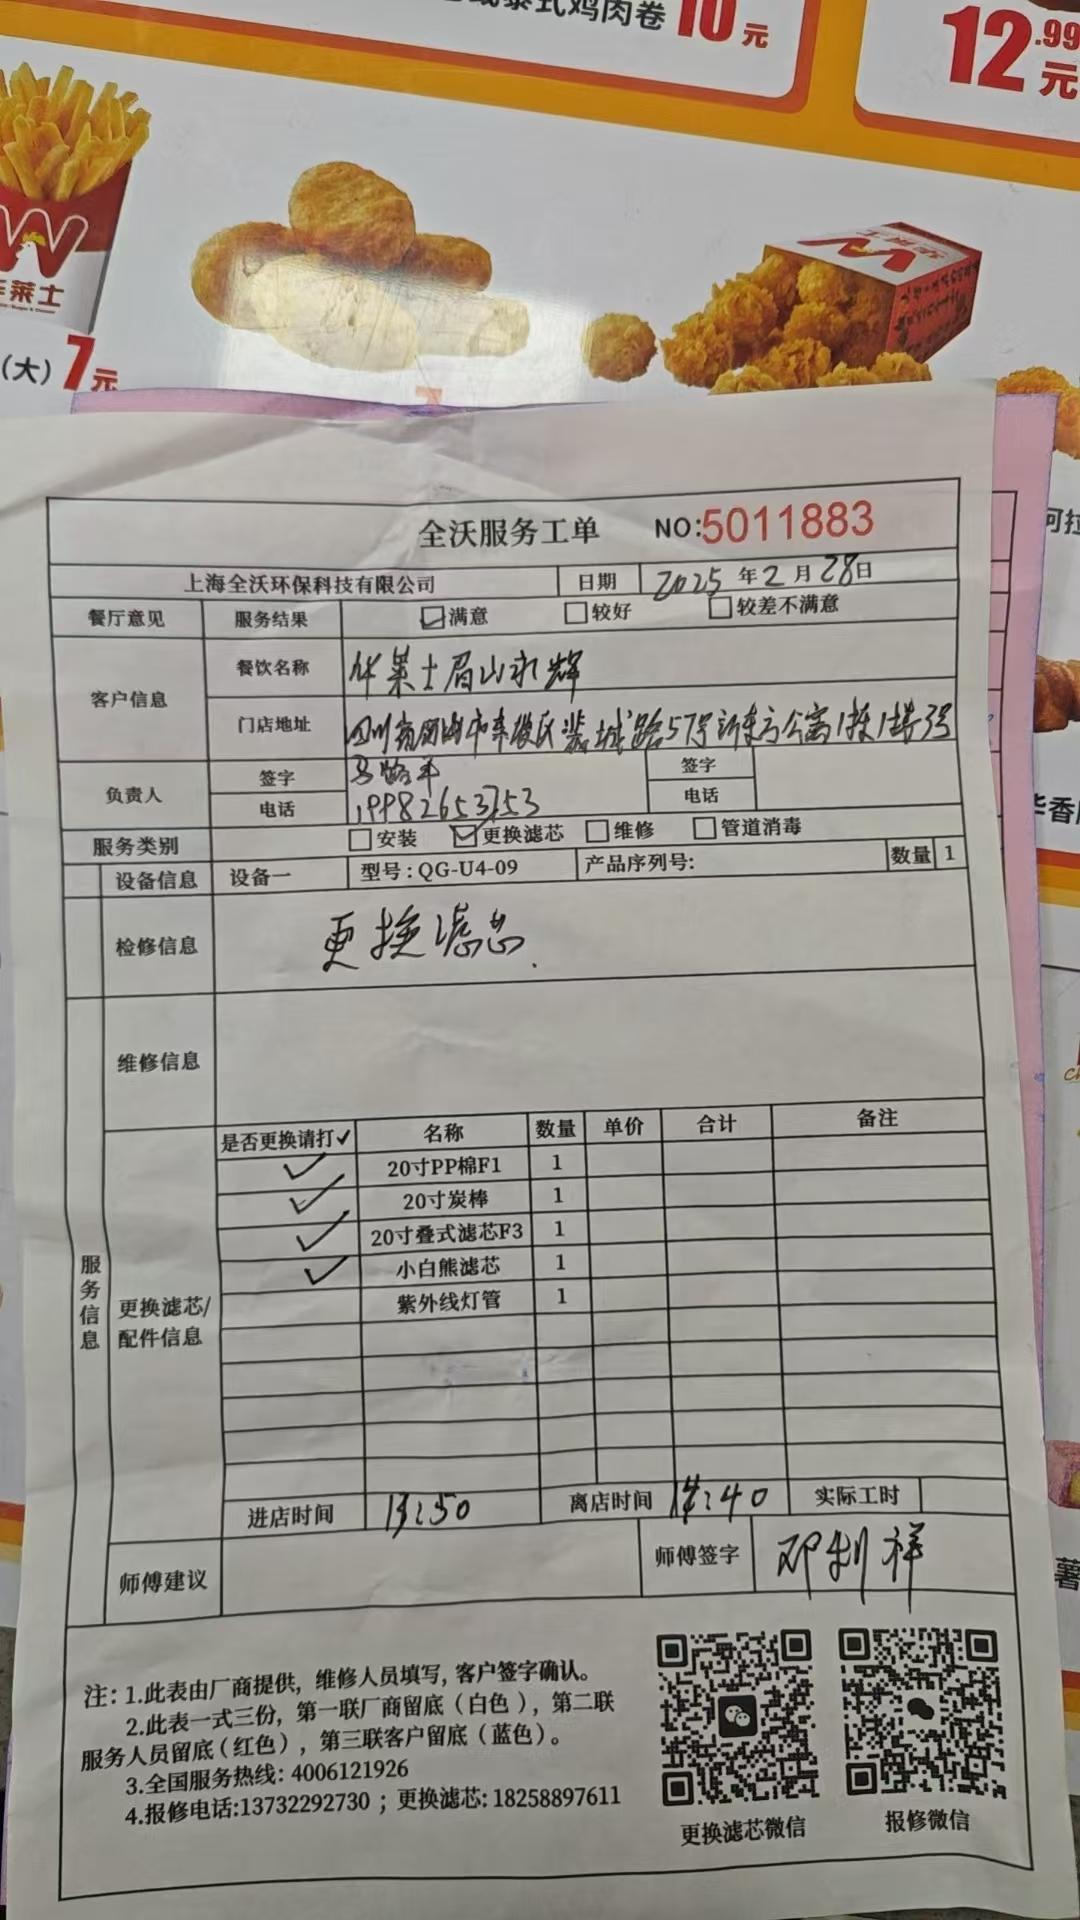 泰式鸡肉卷 10元
12.99元
莱士
(大) 7元
全沃服务工单 NO:5011883
上海全沃环保科技有限公司 日期 2025年2月28日
餐厅意见 服务结果 ☑满意 □较好 □较差不满意
客户信息 餐饮名称 华莱士眉山永辉
门店地址 四川省眉山市东坡区裴城路57号新东方公寓1栋1楼3号
负责人 签字 签字
电话 19982653753 电话
服务类别 □安装 ☑更换滤芯 □维修 □管道消毒
设备信息 设备一 型号:QG-U4-09 产品序列号: 数量 1
检修信息 更换滤芯.
维修信息
服务信息
更换滤芯/配件信息
是否更换请打✓ 名称 数量 单价 合计 备注
✓ 20寸PP棉F1 1
✓ 20寸炭棒 1
✓ 20寸叠式滤芯F3 1
✓ 小白熊滤芯 1
紫外线灯管 1
进店时间 13:50 离店时间 14:40 实际工时
师傅建议 师傅签字 邓利祥
注: 1.此表由厂商提供, 维修人员填写, 客户签字确认。
2.此表一式三份, 第一联厂商留底(白色), 第二联
服务人员留底(红色), 第三联客户留底(蓝色)。
3.全国服务热线: 4006121926
4.报修电话:13732292730 ; 更换滤芯: 18258897611
更换滤芯微信 报修微信